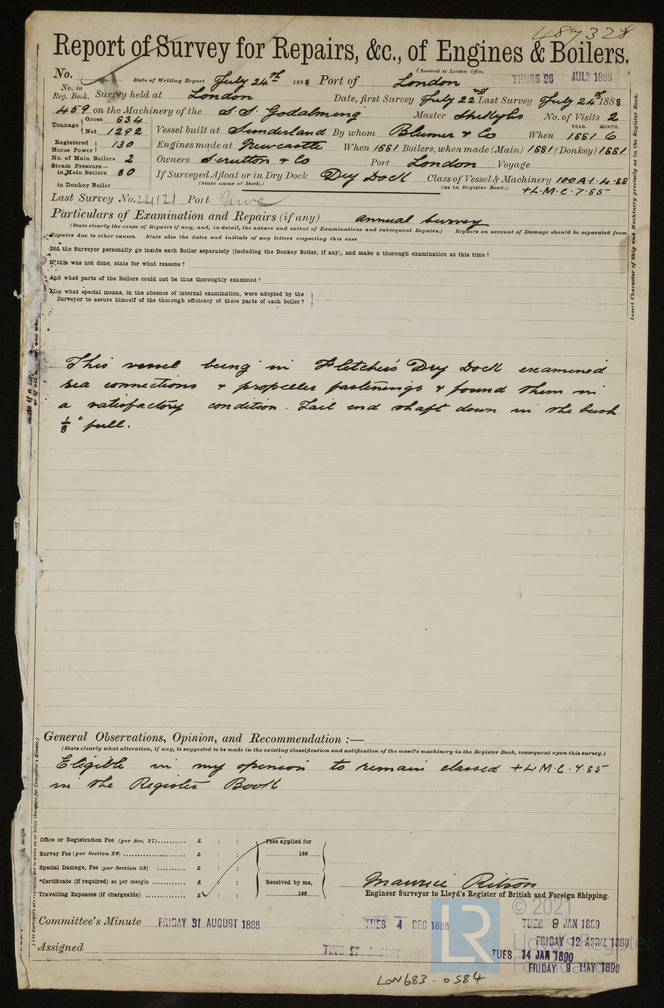 48932
Report of Survey for Repairs, &c., of Engines & Boilers.
(Received at London Office,
No. Date of Writing Report July 24th 1888 Port of London THURS 26 JULY 1888
No. in Reg. Book. Survey held at London Date, first Survey July 22nd Last Survey July 24th 1888
459 on the Machinery of the S.S. Godalming Master No. of Visits 2
Tonnage { Gross 634
Net 1292 Vessel built at Sunderland By whom Blumer & Co When YEAR. 1881 MONTH. 6
Registered Horse Power } 130 Engines made at Newcastle When 1881 Boilers, when made (Main) 1881 (Donkey) 1881
No. of Main Boilers 2 Owners Scrutton & Co Port London Voyage
Steam Pressure— in Main Boilers 80 If Surveyed Afloat or in Dry Dock Dry Dock Class of Vessel & Machinery 100A1. 4.88
in Donkey Boiler (State name of Dock.) (as in Register Book.) +L.M.C. 7.85
Last Survey No. 24121 Port
Particulars of Examination and Repairs (if any) annual survey
(State clearly the cause of Repairs if any, and, in detail, the nature and extent of Examinations and subsequent Repairs.) Repairs on account of Damage should be separated from
Repairs due to other causes. State also the dates and initials of any letters respecting this case
Did the Surveyor personally go inside each Boiler separately (including the Donkey Boiler, if any), and make a thorough examination at this time?
If this was not done, state for what reasons?
And what parts of the Boilers could not be thus thoroughly examined?
Also what special means, in the absence of internal examination, were adopted by the
Surveyor to assure himself of the thorough efficiency of those parts of each boiler?
Insert Character of Ship and Machinery precisely as in the Register Book.
This vessel being in Fletcher's Dry Dock examined
sea connections & propeller fastenings & found them in
a satisfactory condition. Tail end shaft down in the bush
1/8" full.
General Observations, Opinion, and Recommendation :—
(State clearly what alteration, if any, is suggested to be made in the existing classification and notification of the vessel's machinery in the Register Book, consequent upon this survey.)
Eligible in my opinion to remain classed +L.M.C. 7.85
in the Register Book
Office or Registration Fee (per Sec. 27) £ : : Fees applied for
Survey Fee (per Section 28) £ : : 188
Special Damage, Fee (per Section 28) £ : :
*Certificate (if required) as per margin £ : : Received by me,
Travelling Expenses (if chargeable) £ : : 188
Maurice Ritson
Engineer Surveyor to Lloyd's Register of British and Foreign Shipping.
Committee's Minute FRIDAY 31 AUGUST 1888 TUES 4 DEC 1888 TUES 8 JAN 1889
FRIDAY 12 APRIL 1889
Assigned TUES 27 TUES 14 JAN 1890
FRIDAY 9 MAY 1890
© 2021
LR Lloyd's Register
Foundation
LON683-0584